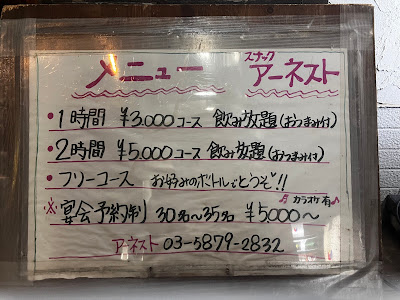 メニュー スナック アーネスト
・1時間 ¥3.000コース 飲み放題(おつまみ付)
・2時間 ¥5.000コース 飲み放題(おつまみ付)
・フリーコース お好みのボトルでどうぞ!!
♬カラオケ有♪
※宴会予約制 30名〜35名 ¥5,000〜
アーネスト 03-5879-2832